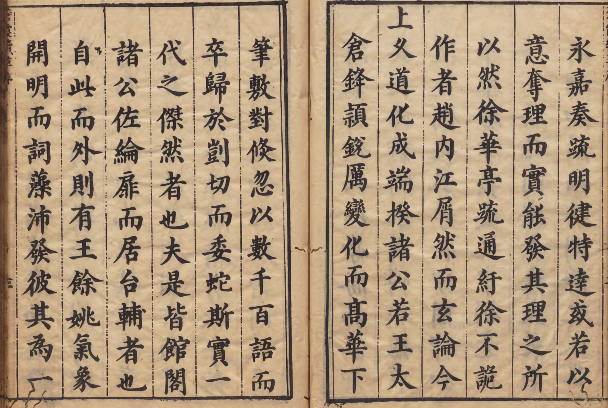 永嘉奏疏明徤特達或若以
意奪理而實能發其理之所
以然徐華亭疏通紆徐不詭
作者趙内江屑然而玄論今
上乂道化成端揆諸公若王太
倉鋒頴銳厲變化而髙華下
筆敷對倐忽以數千百語而
卒歸於剴切而委蛇斯實一
代之傑然者也夫是皆館閣
諸公佐綸扉而居台輔者也
自此而外則有王餘姚氣象
開明而詞藻沛發彼其為一